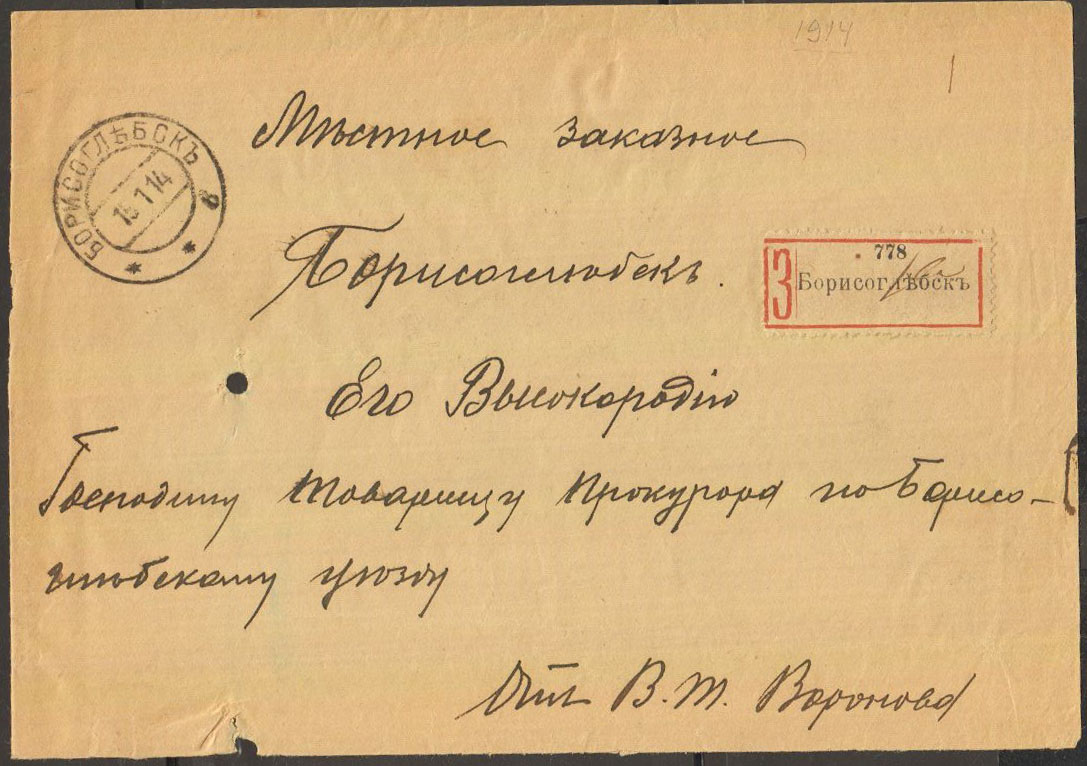 1914
Мѣстное заказное
БОРИСОГЛѢБСКЪ
15 1 14
Борисоглѣбскъ.
778
З Борисоглѣбскъ
Его Высокородію
Господину Товарищу Прокурора по Борисо-
глѣбскому уѣзду
Отъ В. Т. Воронова